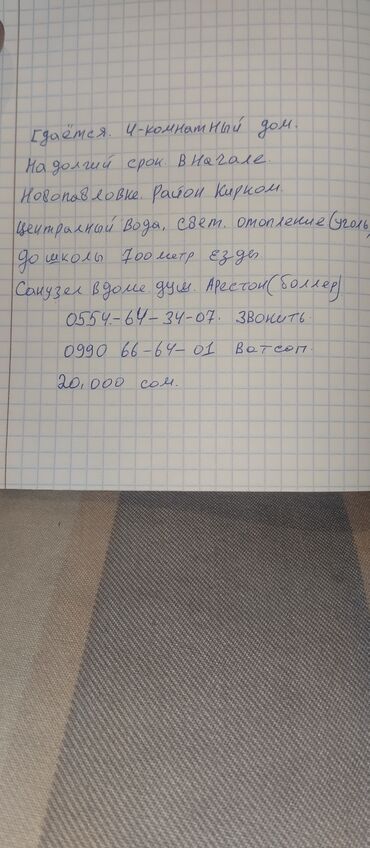 Сдаётся. 4-комнатный дом.
На долгий срок. В начале
Новопавловке. район Кирком.
Централный Вода, свет. отопление (уголь)
До школы 700 метр езды
Санузел в доме. душ. Арестон (боллер)
0554-64-34-07. звонить
0990 66-64-01 Ватсап.
20,000 сом.